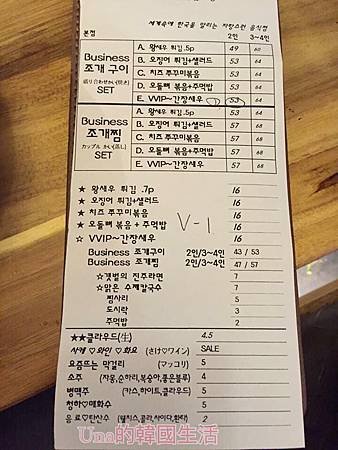 세계속에 한국을 알리는 자랑스런 음식점
본점 2인 3~4인
Business 조개 구이 盛り合わせかい(焼き) SET
A. 왕새우 튀김 .5p 49 60
B. 오징어 튀김+샐러드 53 64
C. 치즈 쭈꾸미볶음 53 64
D. 오돌뼈 볶음+주먹밥 53 64
E. VVIP~간장새우 53 64
Business 조개찜 カップル かい(蒸し) SET
A. 왕새우 튀김 .5p 53 64
B. 오징어 튀김+샐러드 57 68
C. 치즈 쭈꾸미볶음 57 68
D. 오돌뼈 볶음+주먹밥 57 68
E. VVIP~간장새우 57 68
★ 왕새우 튀김 .7p 16
★ 오징어 튀김+샐러드 16
★ 치즈 쭈꾸미볶음 16
★ 오돌뼈 볶음 + 주먹밥 16
☆ VVIP~간장새우 16
V-1
Business 조개구이 2인/3~4인 43 / 53
Business 조개찜 2인/3~4인 47 / 57
☆갯벌의 진주라면 7
☆맑은 수제칼국수 7
찜사리 5
도시락 3
주먹밥 2
★★클라우드(生) 4.5
사케 ♡와인 ♡화요 (さけ♡ワイン) SALE
요즘뜨는 막걸리 (マッコリ) 5
소주 (자몽,순하리,복숭아,좋은블루) 4
병맥주 (카스,하이트,클라우드) 5
청하♡매화수 5
음료♡탄산수 (웰치스,콜라,사이다,환타) 2
Una的韓國生活